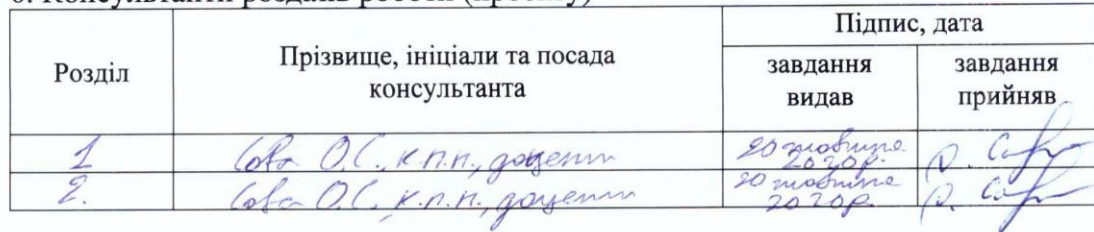 6. Консультанти розділів роботи (проєкту)
Розділ
Прізвище, ініціали та посада
консультанта
Підпис, дата
завдання
видав
завдання
прийняв
1
Сова О.С., к.п.н., доцент
20 жовтня
2020р.
2.
Сова О.С. к.п.н., доцент
20 жовтня
2020р.